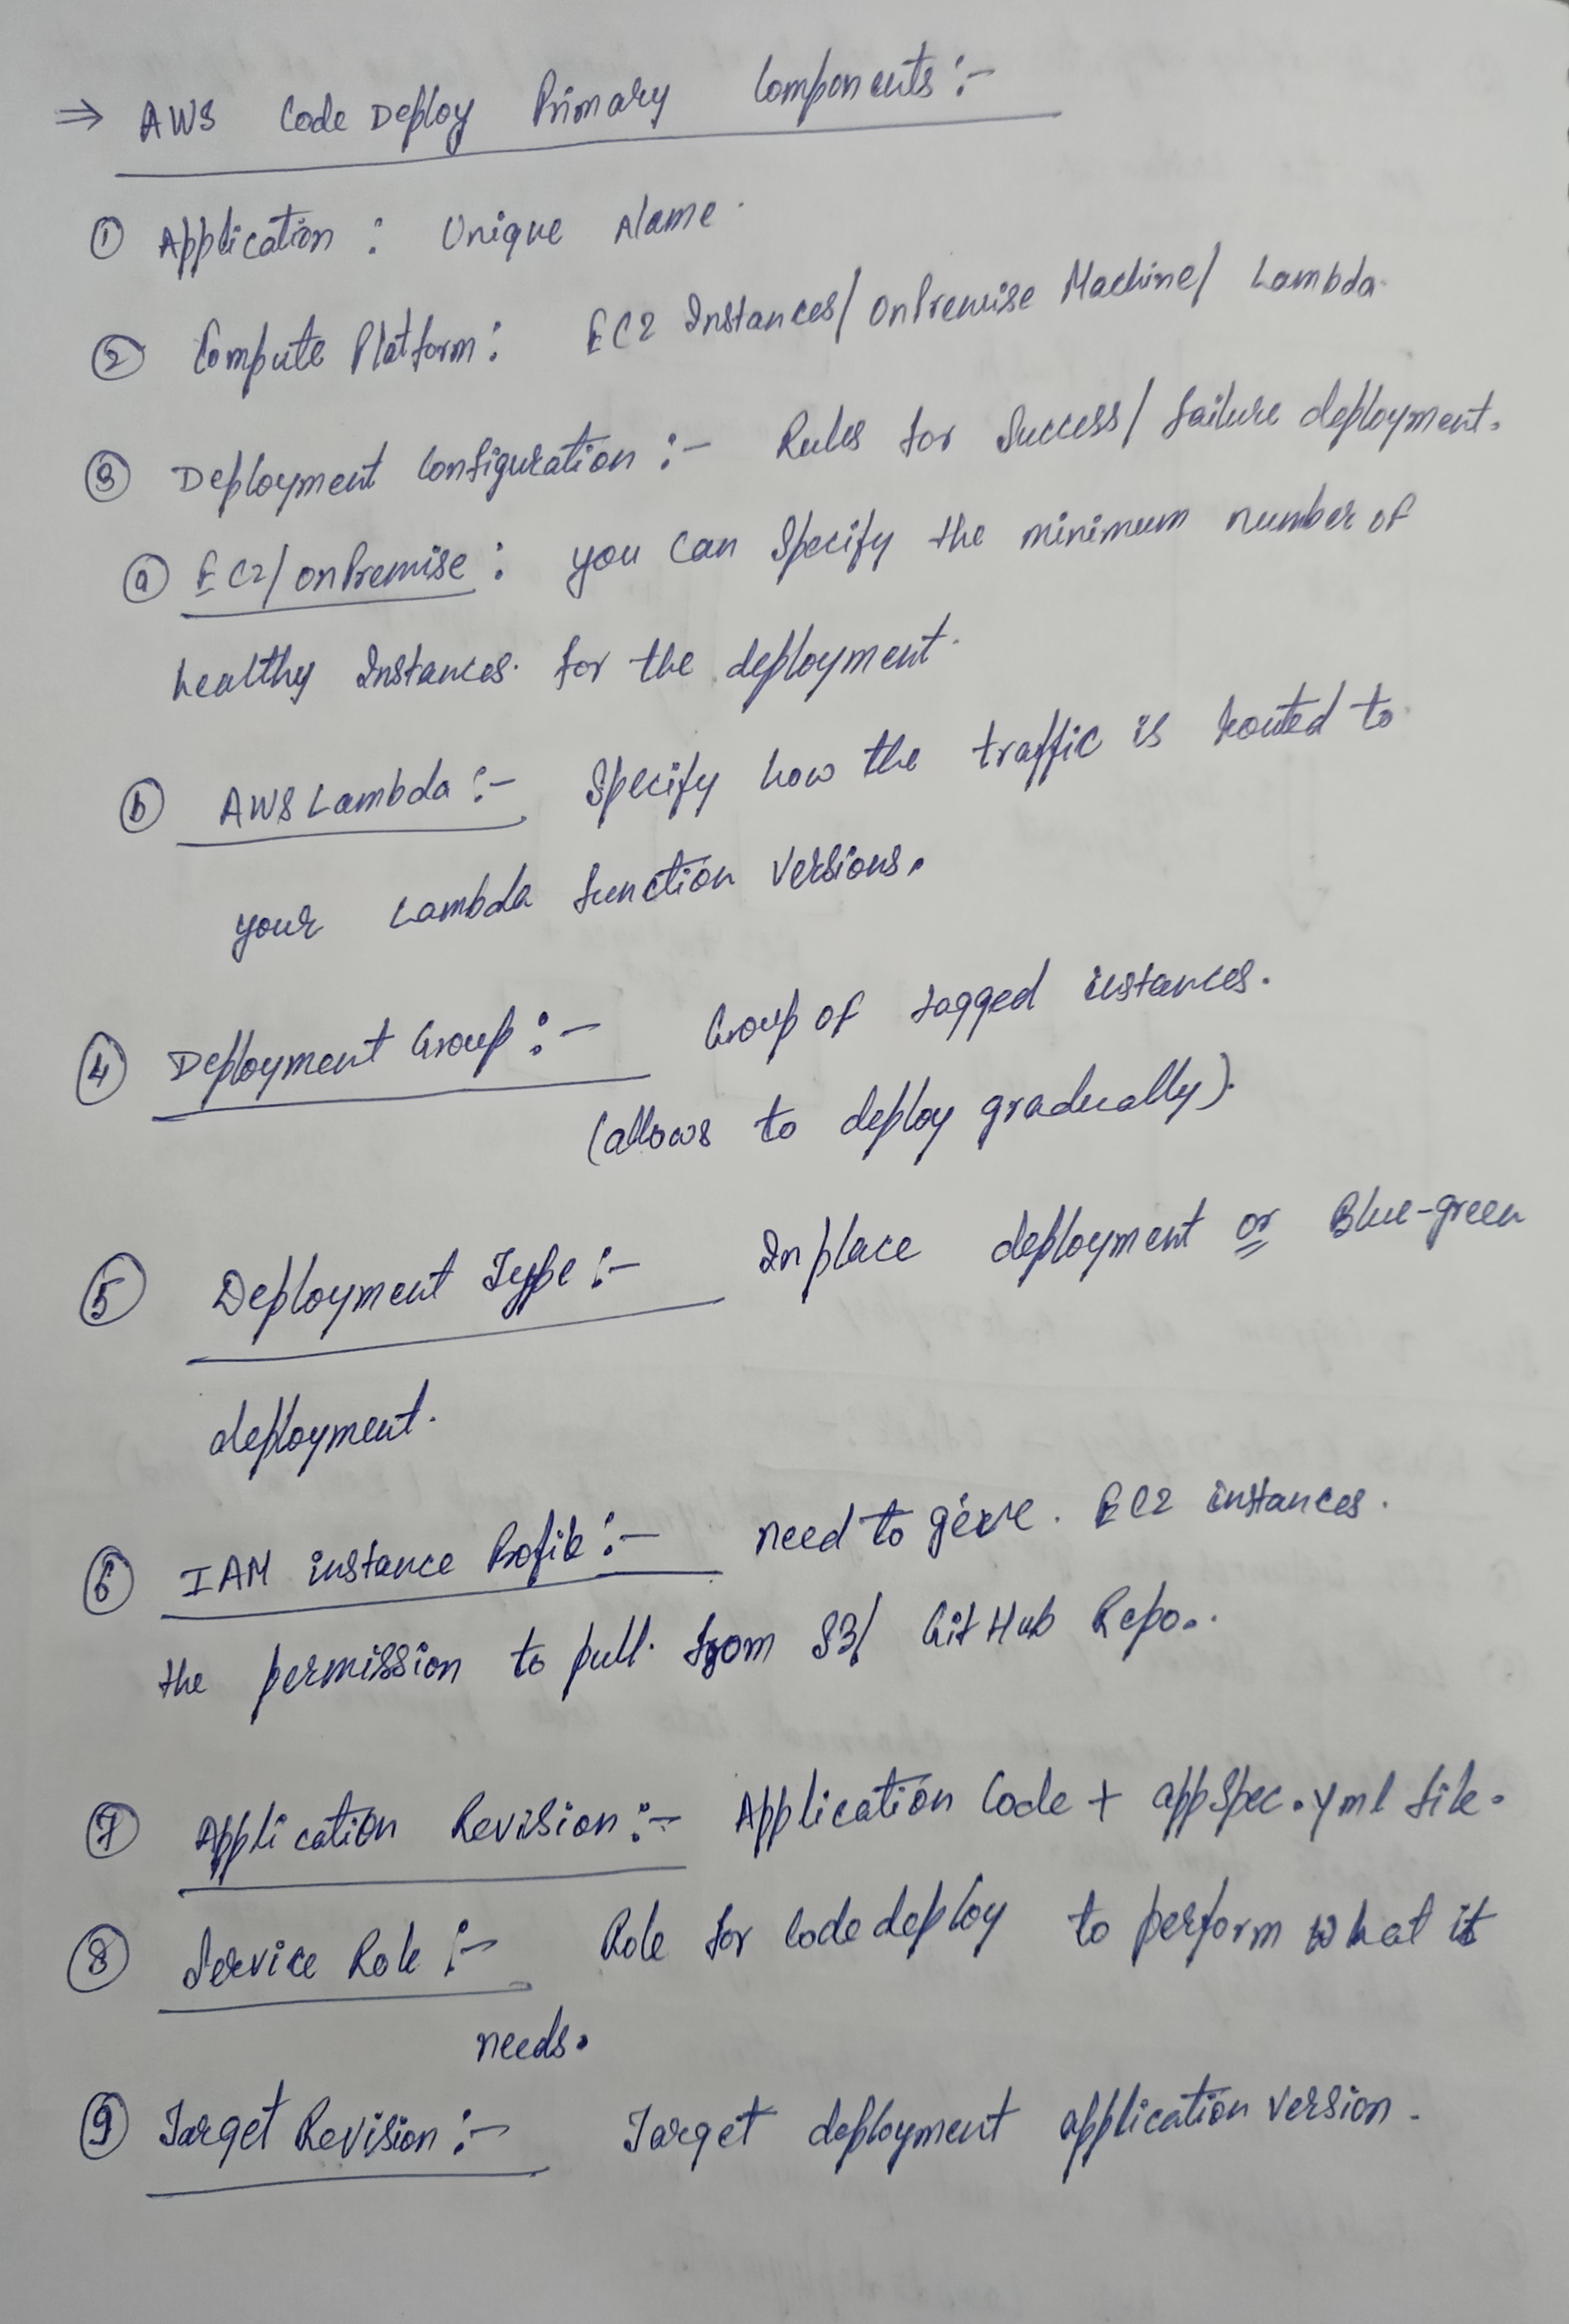 ⇒ AWS Code Deploy Primary Components :-
① Application : Unique Name.
② Compute Platform : EC2 Instances/ OnPremise Machine/ Lambda.
③ Deployment Configuration :- Rules for Success/ failure deployment.
ⓐ EC2/ onPremise : you can Specify the minimum number of
healthy Instances. for the deployment.
ⓑ AWS Lambda :- Specify how the traffic is routed to.
your Lambda function Versions.
④ Deployment Group :- Group of tagged instances.
(allows to deploy gradually).
⑤ Deployment Type :- In place deployment or Blue-green
deployment.
⑥ IAM instance Profile :- need to give. EC2 instances.
the permission to pull. from S3/ GitHub Repo..
⑦ Application Revision :- Application Code + appSpec.yml file.
⑧ Service Role :- Role for Code deploy to perform what it
needs.
⑨ Target Revision :- Target deployment application version.